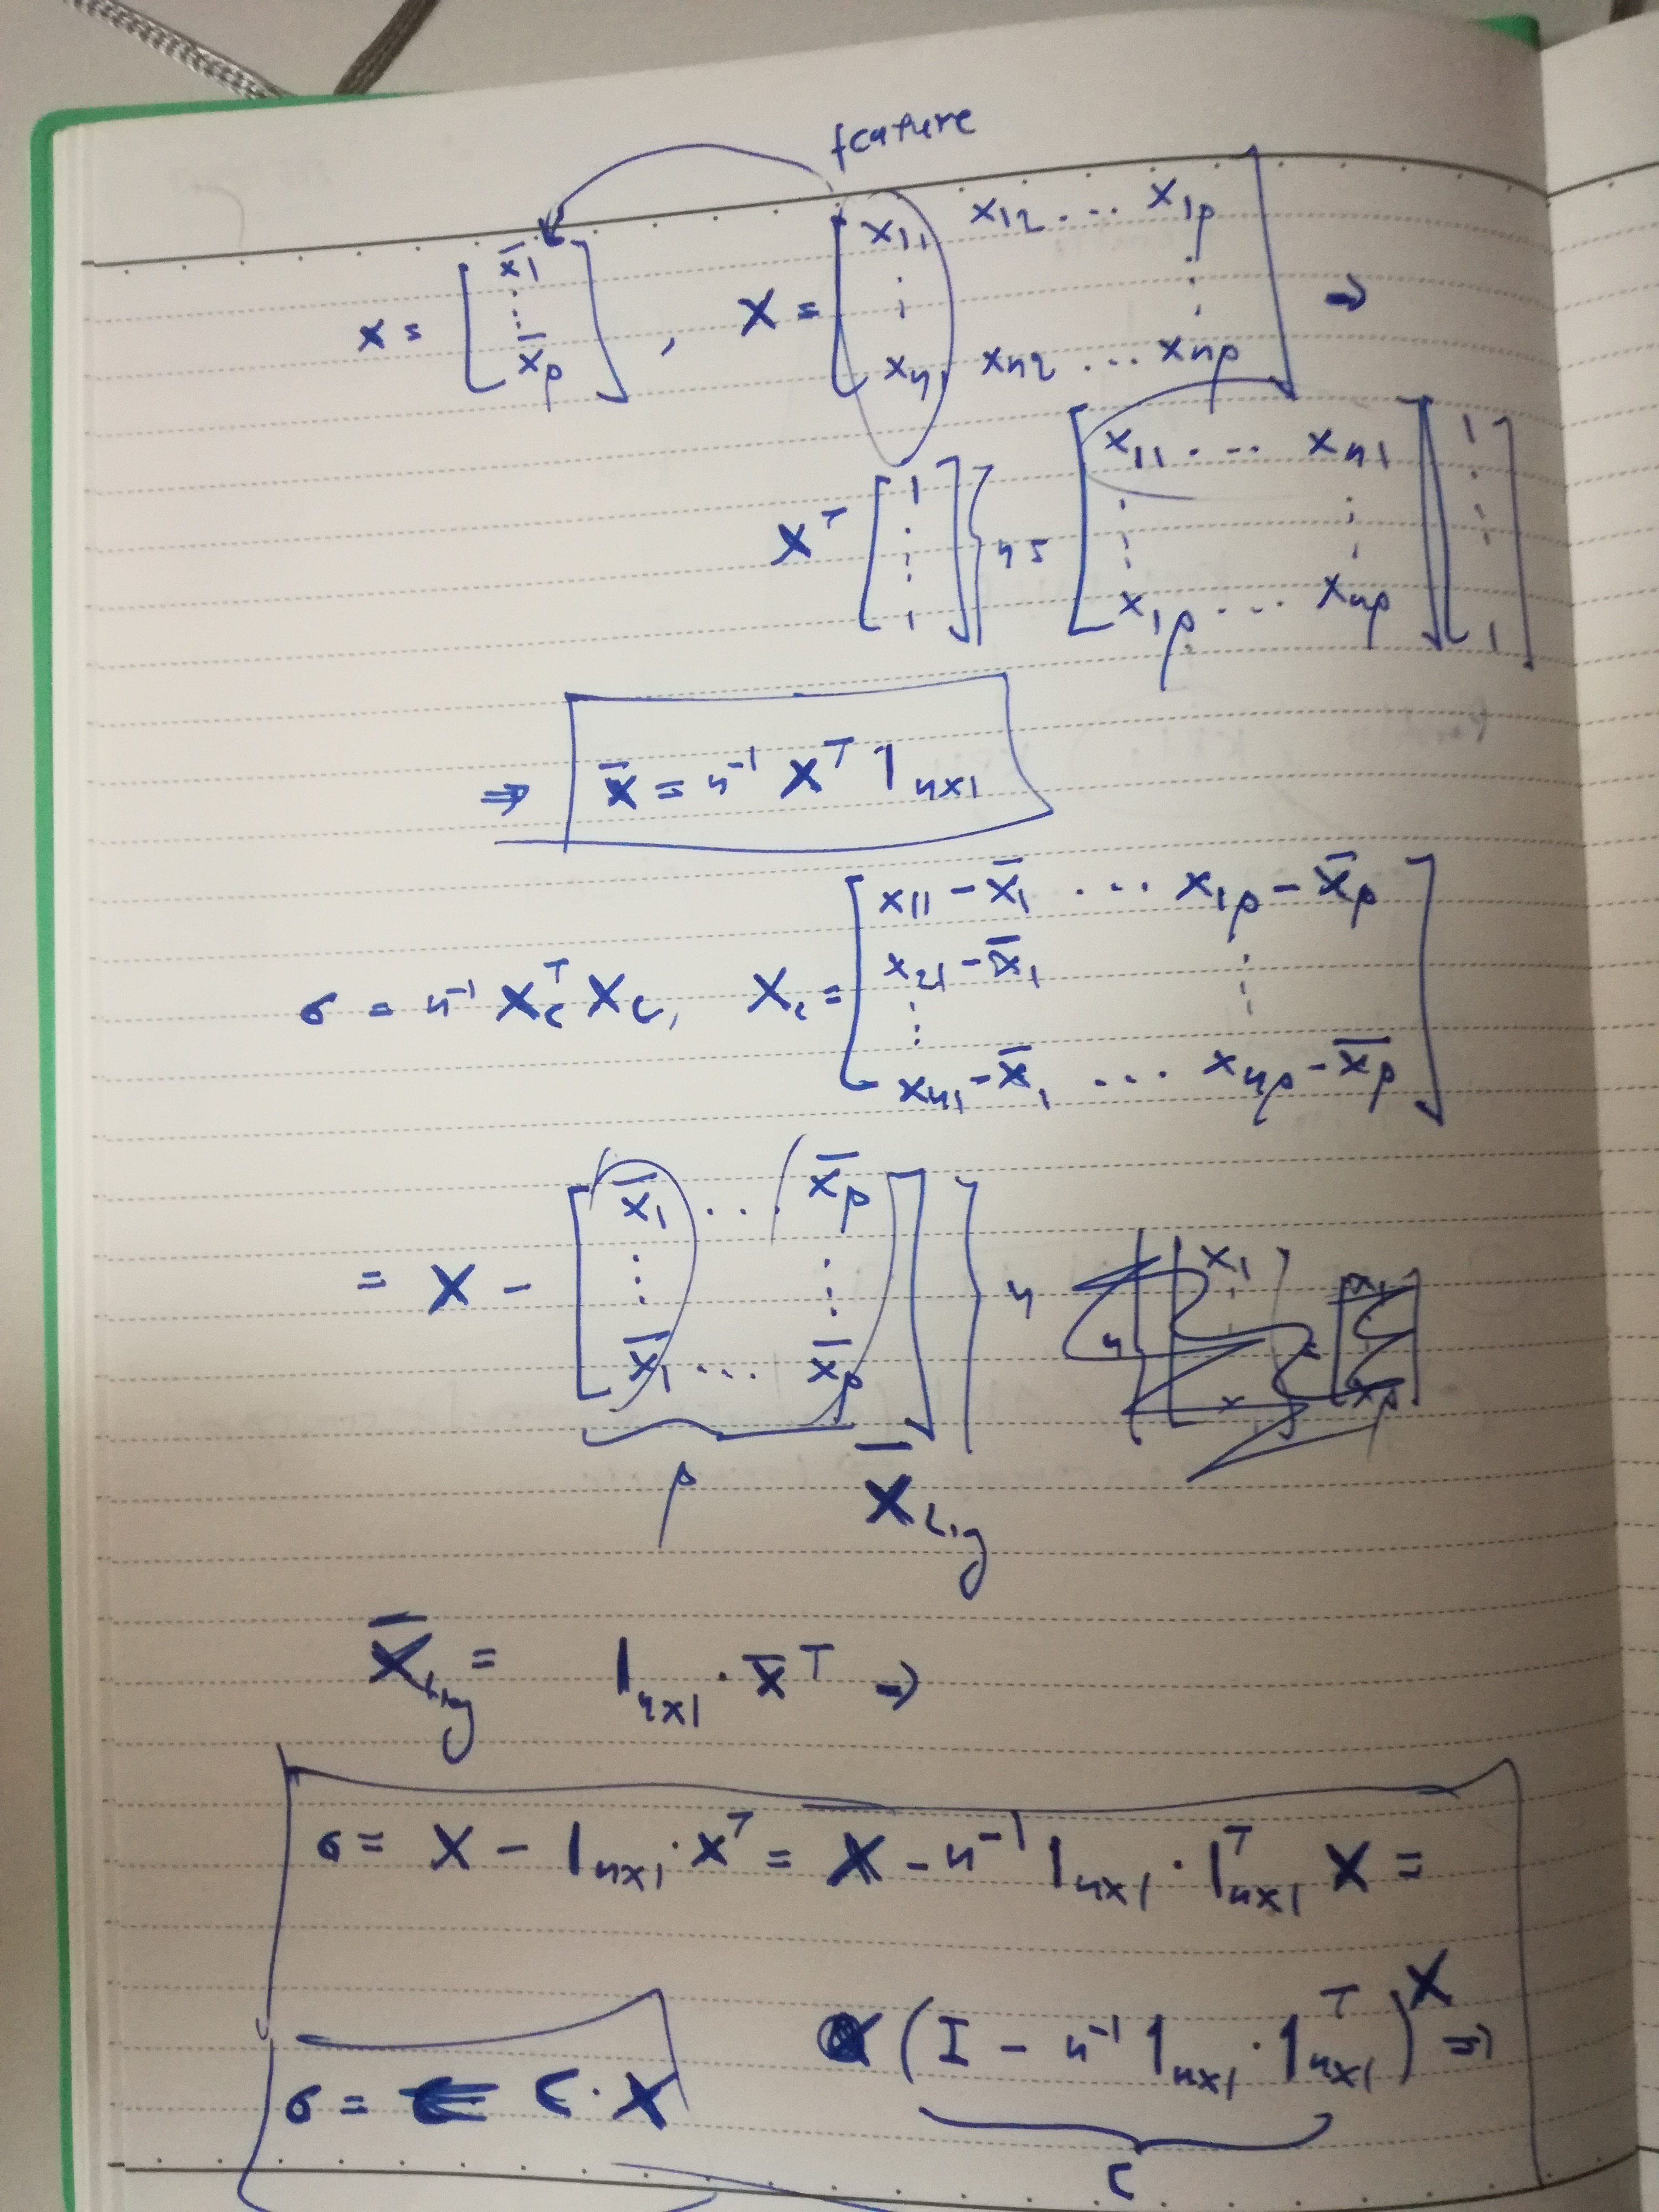 feature
x = [ x̄1 ⋮ x̄p ] , X = [ x11 x12 ... x1p ⋮ ⋮ xn1 xn2 ... xnp ] ⇒
X^T [ 1 ⋮ 1 ] } n = [ x11 ... xn1 ⋮ ⋮ x1p ... xnp ] [ 1 ⋮ 1 ]
⇒ x̄ = n^-1 X^T 1_nx1
σ = n^-1 X_c^T X_c, X_c = [ x11 - x̄1 ... x1p - x̄p x21 - x̄1 ⋮ ⋮ xn1 - x̄1 ... xnp - x̄p ]
= X - [ x̄1 ... x̄p ⋮ ⋮ x̄1 ... x̄p ] } n
p X̄_big
X̄_big = 1_nx1 · x̄^T ⇒
σ = X - 1_nx1 · x^T = X - n^-1 1_nx1 · 1_nx1^T X =
(I - n^-1 1_nx1 · 1_nx1^T) X ⇒
C
σ = C · X